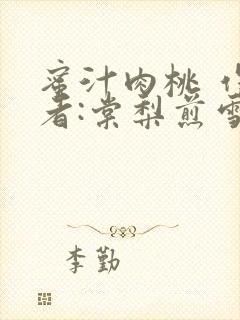 蜜汁肉桃
者:棠梨煎雪
李勤